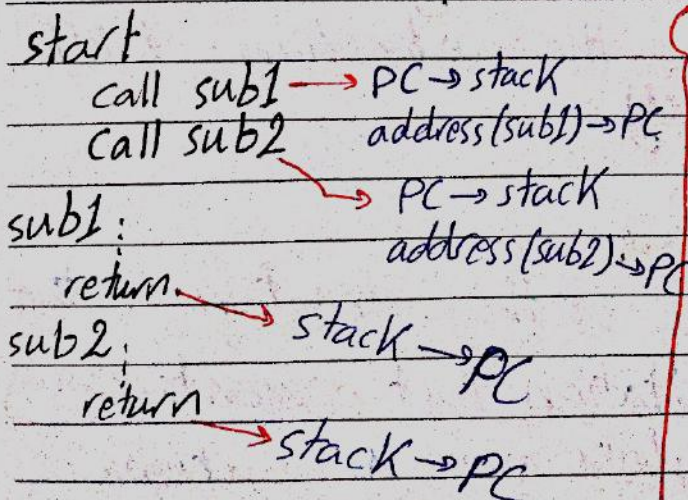 start
call sub1 → PC → stack
address(sub1) → PC
call sub2
→ PC → stack
address(sub2) → PC
sub1:
return → stack → PC
sub2:
return → stack → PC